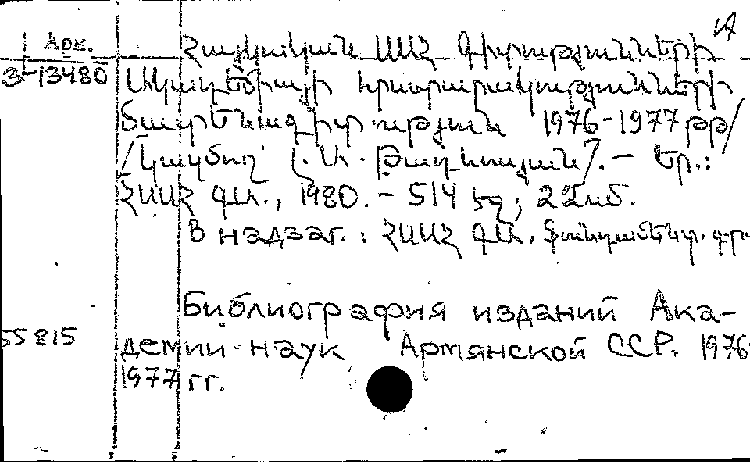 Арм.
Հայկական ՍՍՀ Գիտությունների
3-13480 Ակադեմիայի հրատարակությունների
մատենագիտություն 1976-1977 թթ/
/Կազմող՝ Լ. Ա. Բաղիասյան/. – Եր.:
ՀՍՍՀ ԳԱ., 1980. – 514 էջ; 22սմ.
В надзаг.: ՀՍՍՀ ԳԱ. Ֆունդամենտ.
Библиография изданий Ака-
55815 демии наук Армянской ССР. 1976-
1977 гг.